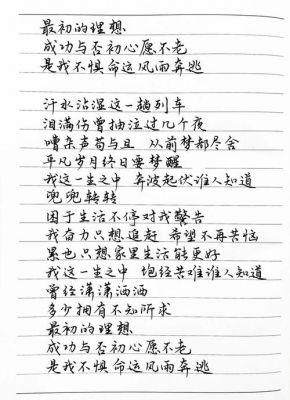 最初的理想
成功与否初心愿不老
是我不惧命运风雨奔逃
汗水沾湿这一趟列车
泪满伤曾抽泣过几个夜
嘈杂声苟与且 从前梦都尽舍
平凡岁月终日要梦醒
我这一生之中 奔波起伏谁人知道
兜兜转转
困于生活不停对我警告
我奋力只想追赶 希望不再苦恼
累也只想家里生活能更好
我这一生之中 饱经苦难谁人知道
曾经潇潇洒洒
多少拥有不知所求
最初的理想
成功与否初心愿不老
是我不惧命运风雨奔逃